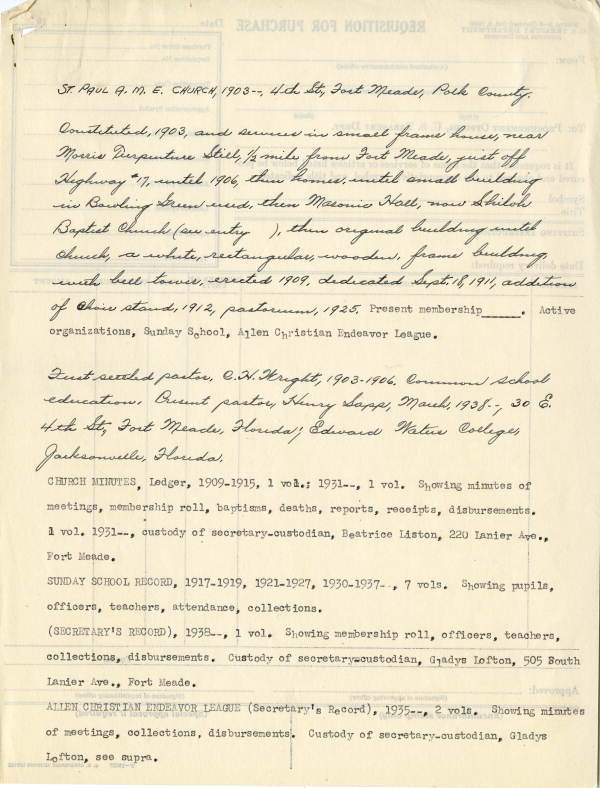 REQUISITION FOR PURCHASE
St. Paul A. M. E. Church, 1903--, 4th St., Fort Meade, Polk County.
Constituted, 1903, and services in small frame house, near
Morris Turpentine Still, 1/2 mile from Fort Meade, just off
Highway #17, until 1906, then homes, until small building
in Bowling Green used, then Masonic Hall, now Shiloh
Baptist Church (see entry ), then original building until
church, a white, rectangular, wooden, frame building,
with bell tower, erected 1909, dedicated Sept. 18, 1911, addition
of Choir stand, 1912, pastorium, 1925. Present membership______. Active
organizations, Sunday School, Allen Christian Endeavor League.
First settled pastor, C.H. Wright, 1903-1906. Common school
education. Present pastor, Henry Sapp, March, 1938--, 30 E.
4th St., Fort Meade, Florida; Edward Waters College,
Jacksonville, Florida.
CHURCH MINUTES, Ledger, 1909-1915, 1 vol.; 1931--, 1 vol. Showing minutes of
meetings, membership roll, baptisms, deaths, reports, receipts, disbursements.
1 vol. 1931--, custody of secretary-custodian, Beatrice Liston, 220 Lanier Ave.,
Fort Meade.
SUNDAY SCHOOL RECORD, 1917-1919, 1921-1927, 1930-1937--, 7 vols. Showing pupils,
officers, teachers, attendance, collections.
(SECRETARY'S RECORD), 1938--, 1 vol. Showing membership roll, officers, teachers,
collections, disbursements. Custody of secretary-custodian, Gladys Lofton, 505 South
Lanier Ave., Fort Meade.
ALLEN CHRISTIAN ENDEAVOR LEAGUE (Secretary's Record), 1935--, 2 vols. Showing minutes
of meetings, collections, disbursements. Custody of secretary-custodian, Gladys
Lofton, see supra.